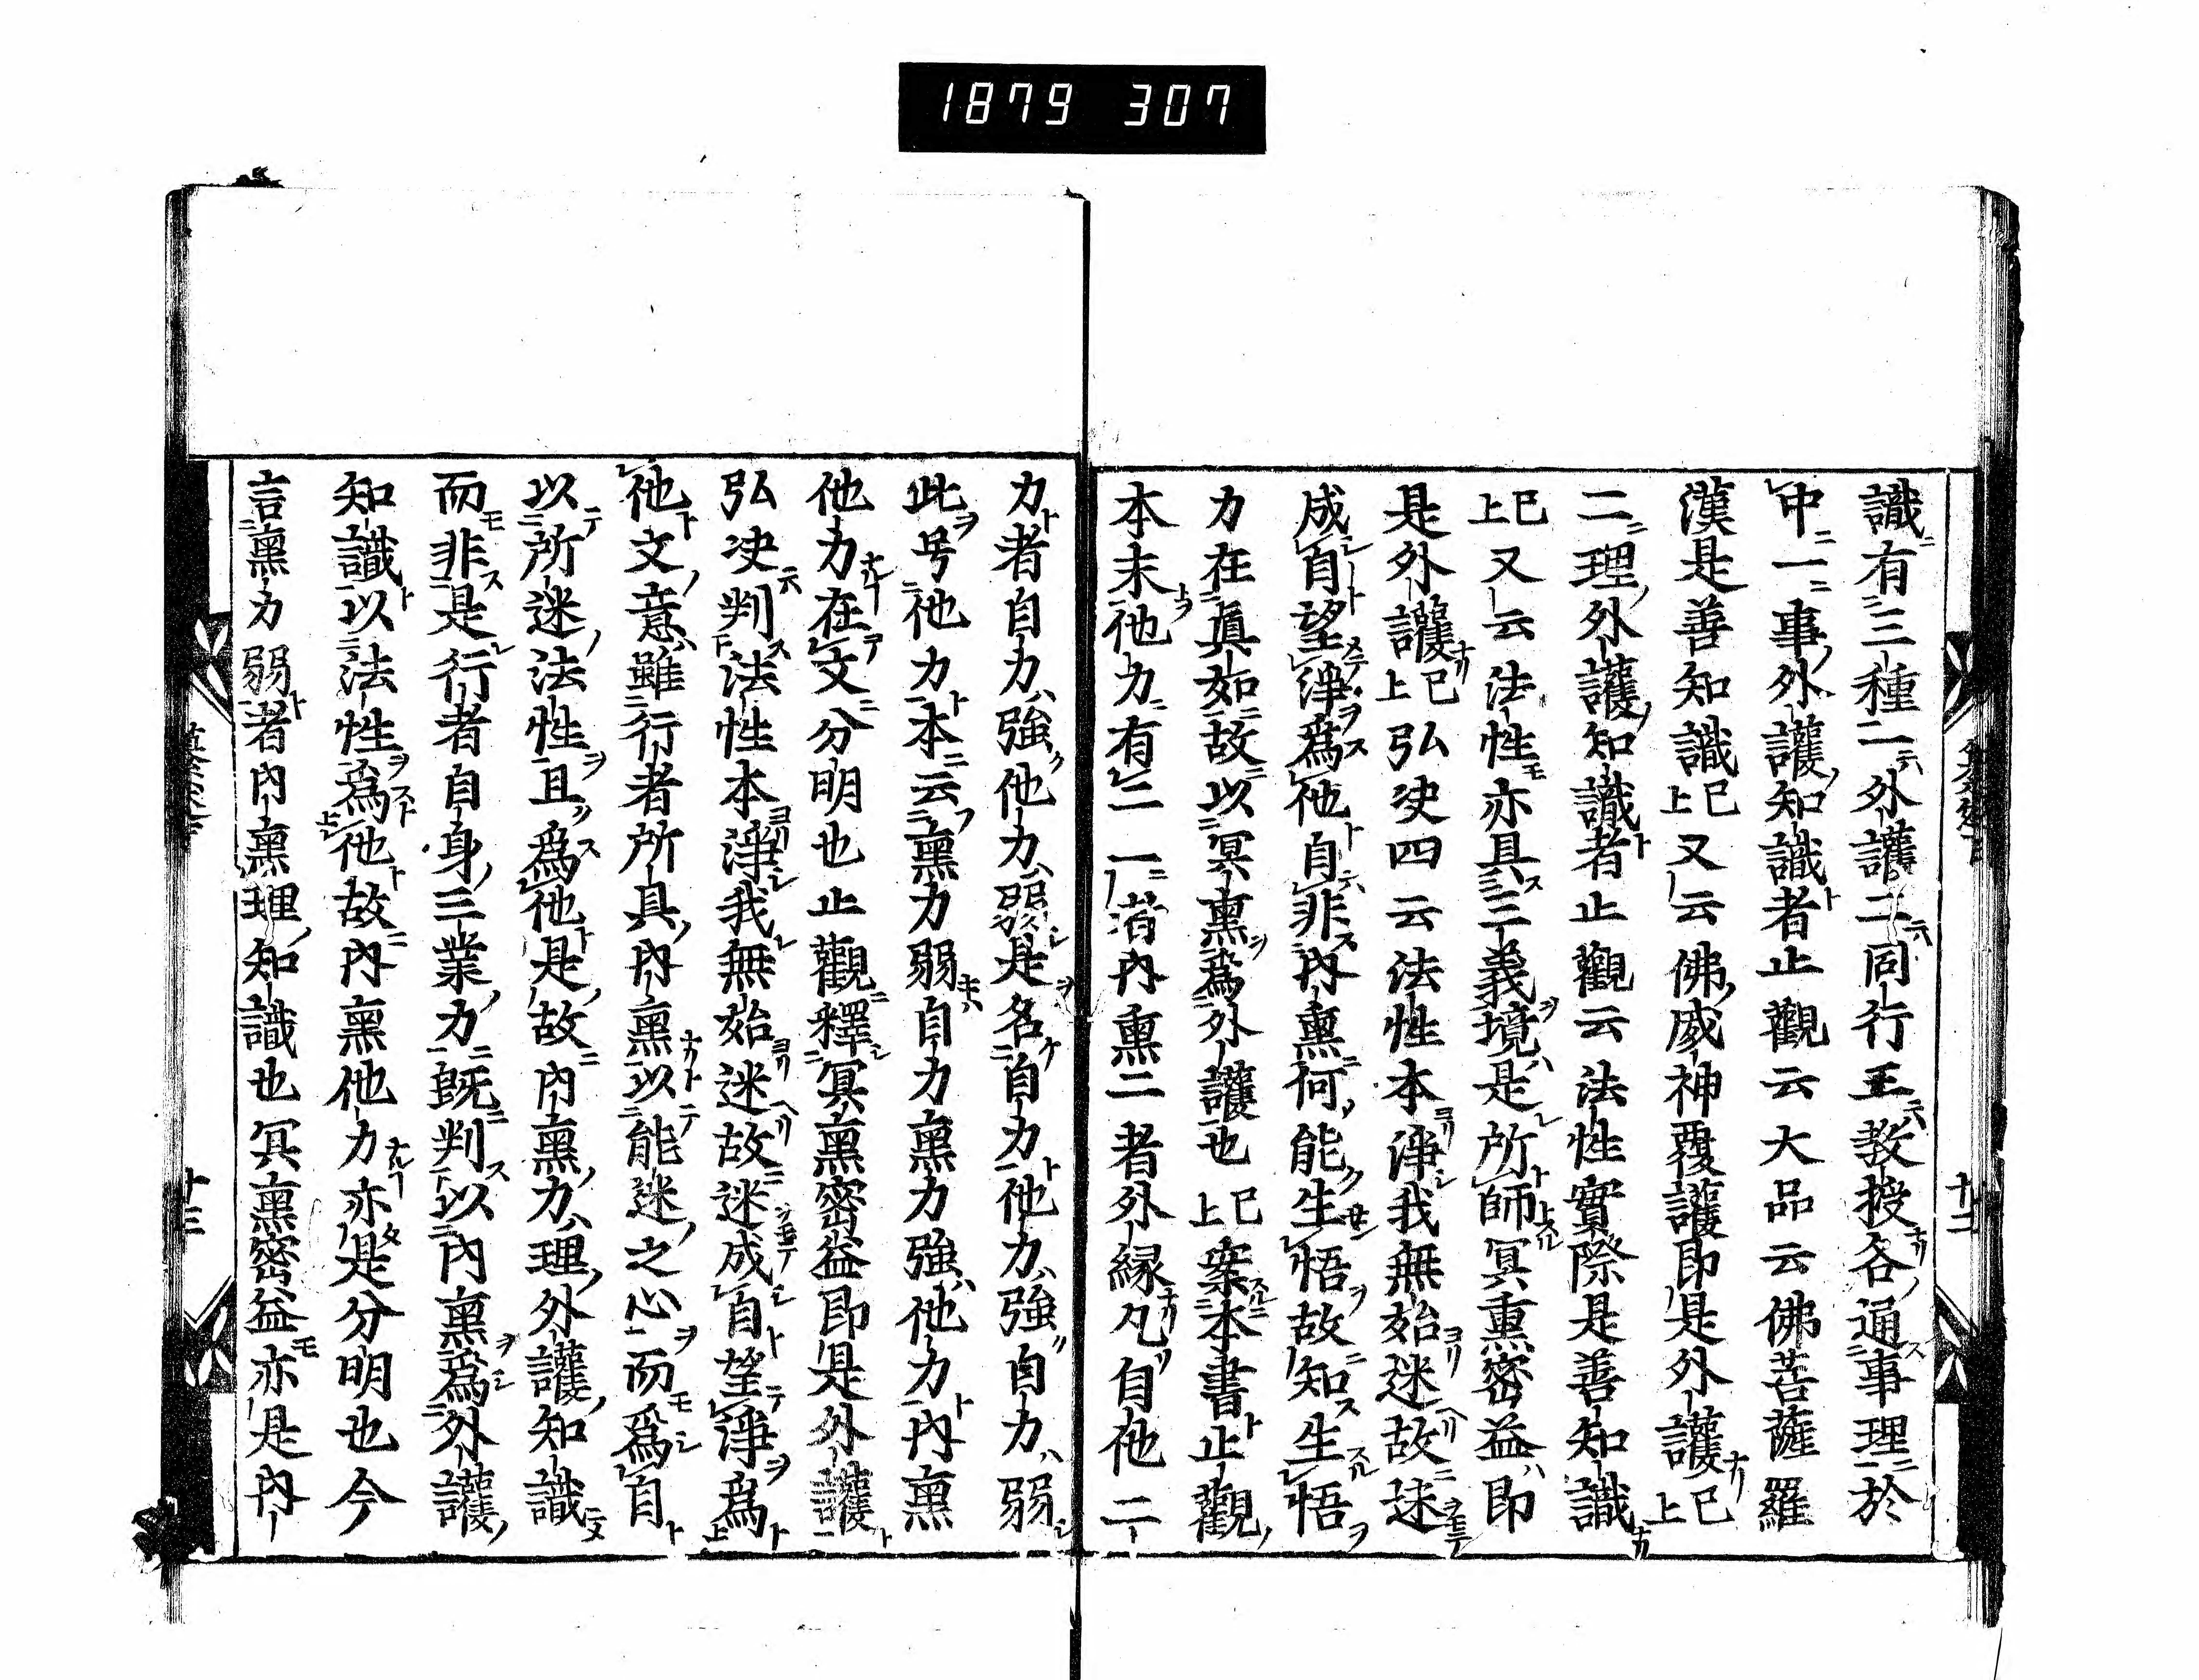 1879 307
識有三種一外護二同行三教授各通事理於
中一事外護知識者止觀云大品云佛菩薩羅
漢是善知識已上又云佛威神覆護即是外護已上
二理外護知識者止觀云法性實際是善知識
已上又云法性亦具三義境是所師冥熏密益即
是外護已上弘决四云法性本淨我無始迷故迷
成自望淨爲他自非内熏何能生悟故知生悟
力在眞如故以冥熏爲外護也已上案本書止觀
本末他力有二一者内熏二者外縁凡自他二
力者自力強他力弱是名自力他力強自力弱
此号他力本云熏力弱自力熏力強他力内熏
他力在文分明也止觀釋冥熏密益即是外護
弘决判法性本淨我無始迷故迷成自望淨爲
他文意雖行者所具内熏以能迷之心而爲自
以所迷法性且爲他是故内熏力理外護知識
而非是行者自身三業力既判以内熏爲外護
知識以法性爲他故内熏他力亦是分明也今
言熏力弱者内熏理知識也冥熏密益亦是内
十二
十三